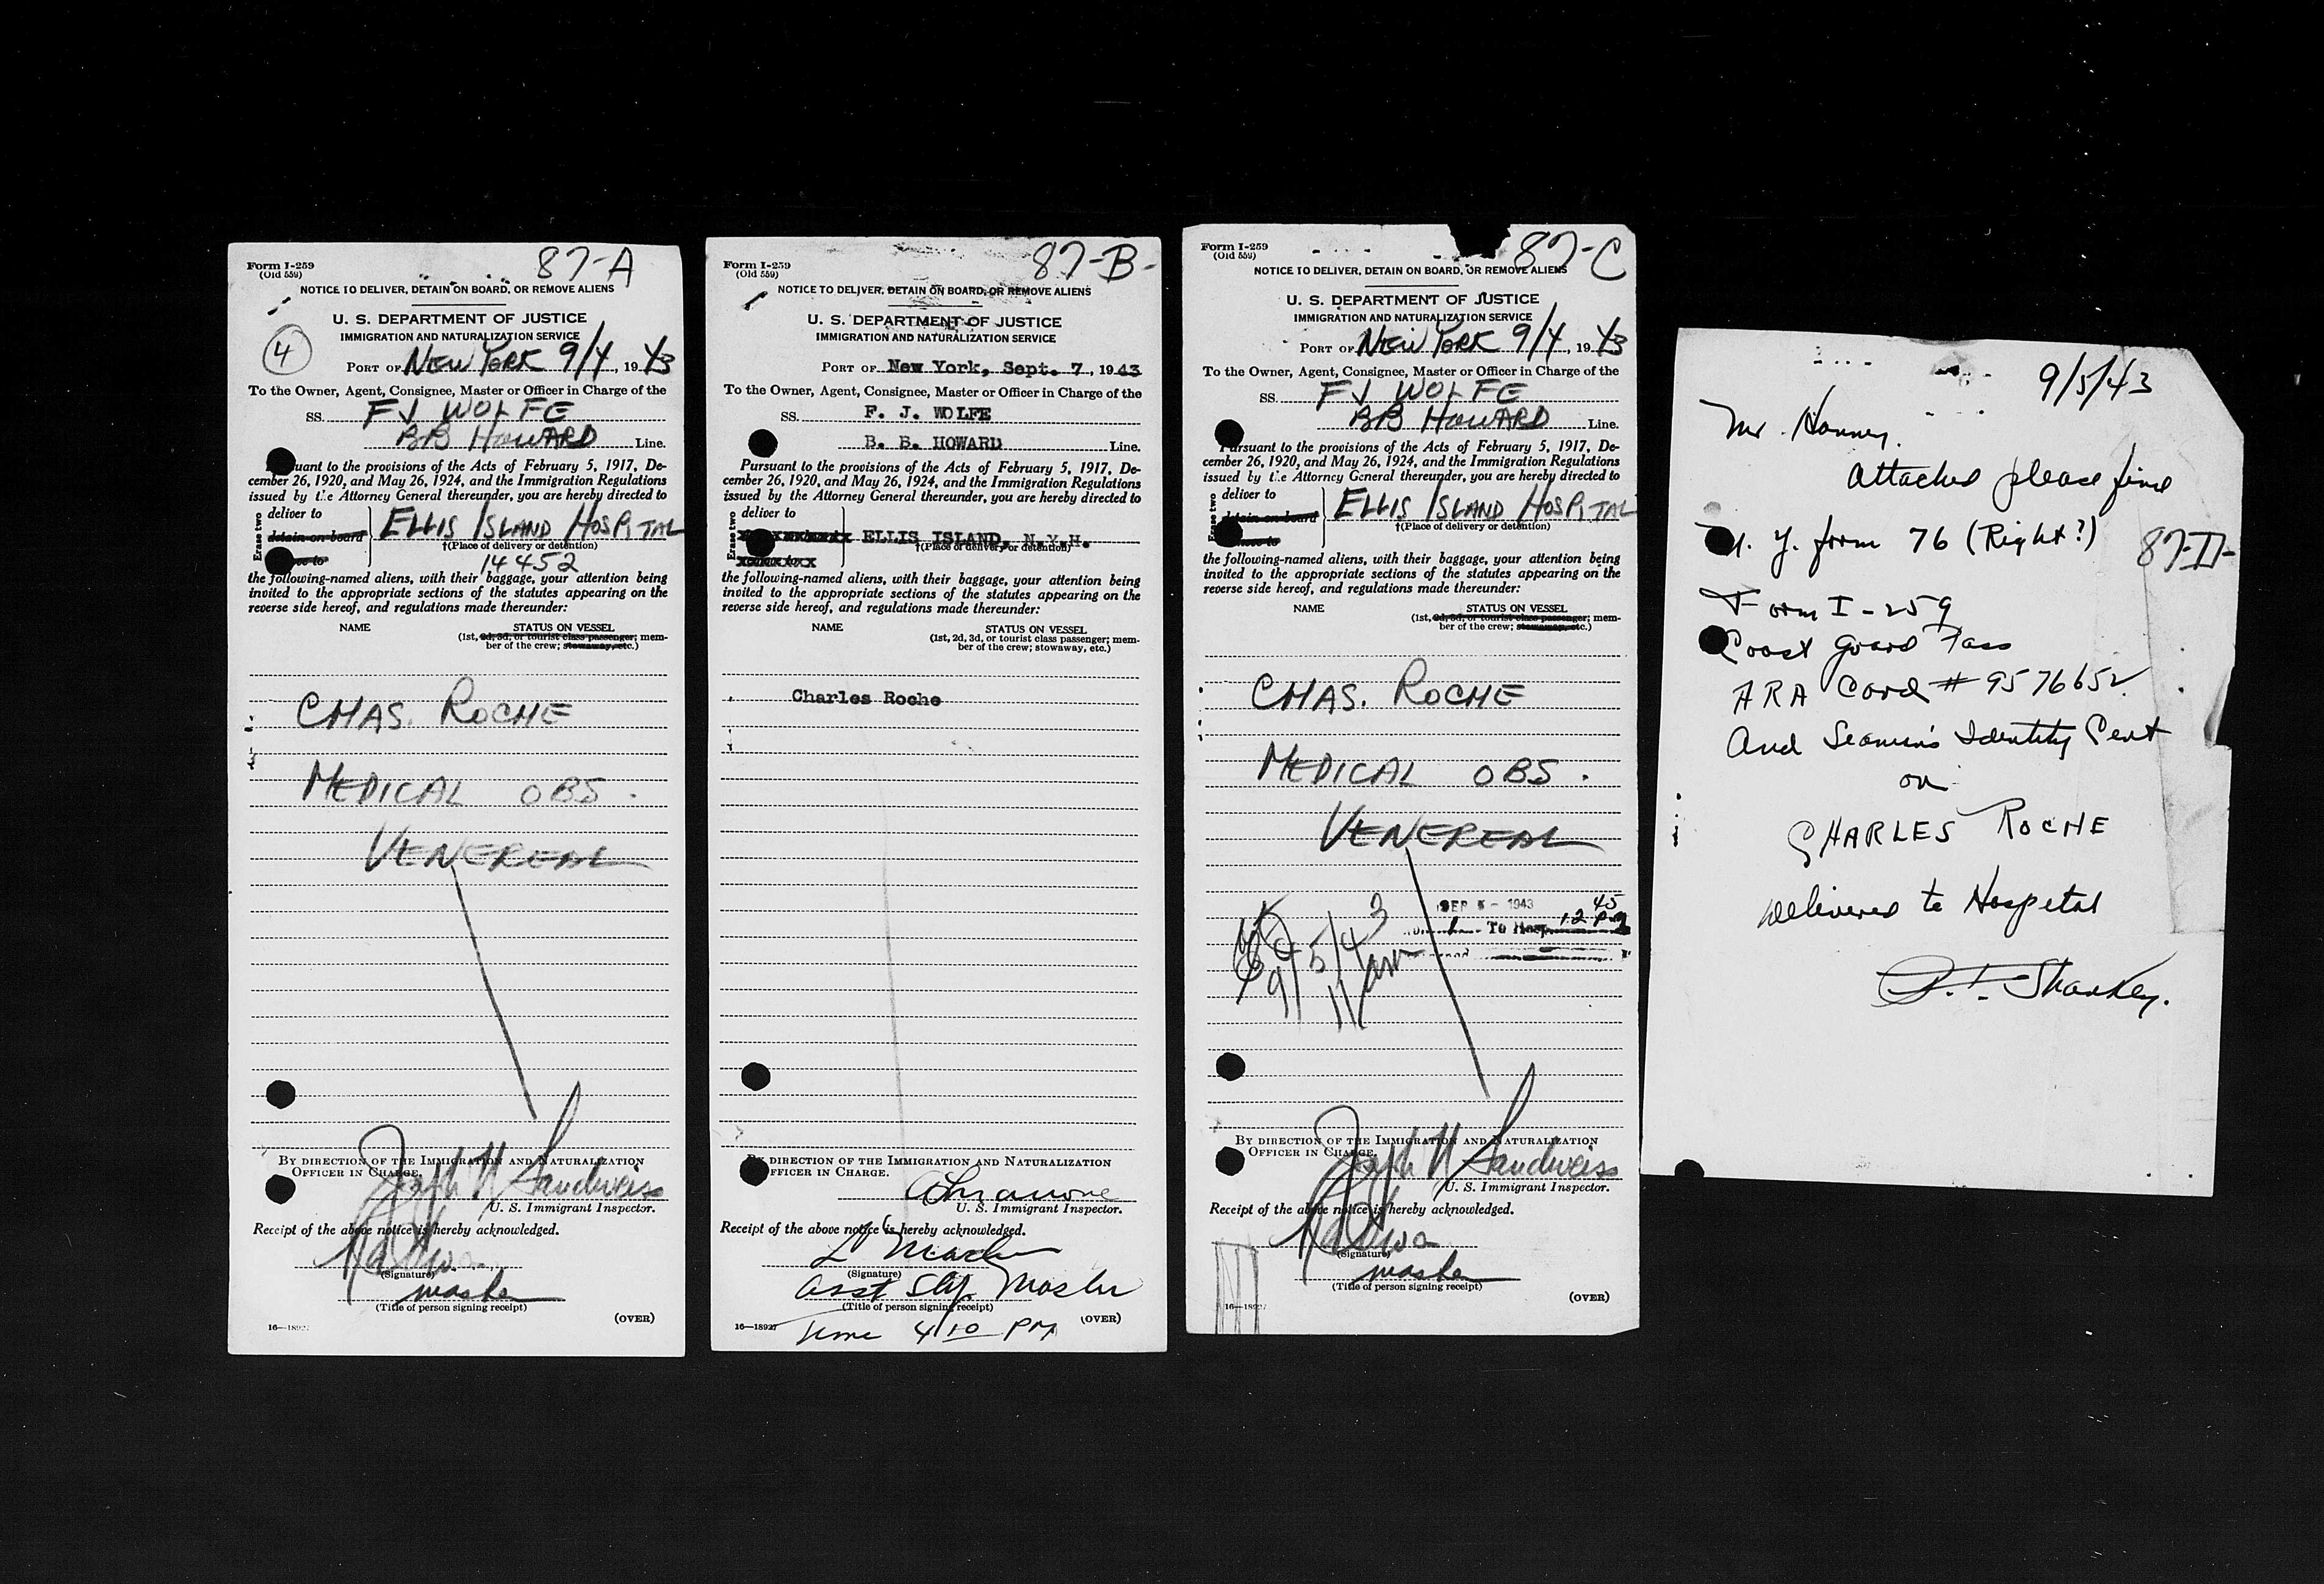 Form I-259
(Old 559)
87-A
NOTICE TO DELIVER, DETAIN ON BOARD, OR REMOVE ALIENS
U. S. DEPARTMENT OF JUSTICE
IMMIGRATION AND NATURALIZATION SERVICE
4
PORT OF NEW YORK 9/4, 1943
To the Owner, Agent, Consignee, Master or Officer in Charge of the
SS. FJ WOLFE
BB HOWARD Line.
Pursuant to the provisions of the Acts of February 5, 1917, De-
cember 26, 1920, and May 26, 1924, and the Immigration Regulations
issued by the Attorney General thereunder, you are hereby directed to
Erase two
deliver to
detain on board
ELLIS ISLAND HOSPITAL
†(Place of delivery or detention)
14452
the following-named aliens, with their baggage, your attention being
invited to the appropriate sections of the statutes appearing on the
reverse side hereof, and regulations made thereunder:
NAME STATUS ON VESSEL
(1st, 2d, 3d, or tourist class passenger; mem-
ber of the crew; stowaway, etc.)
CHAS. ROCHE
MEDICAL OBS.
VENEREAL
BY DIRECTION OF THE IMMIGRATION AND NATURALIZATION
OFFICER IN CHARGE.
Joseph H Sandweiss
U. S. Immigrant Inspector.
Receipt of the above notice is hereby acknowledged.
(Signature)
master
(Title of person signing receipt)
(OVER)
16—18927
Form I-259
(Old 559)
87-B-
NOTICE TO DELIVER, DETAIN ON BOARD, OR REMOVE ALIENS
U. S. DEPARTMENT OF JUSTICE
IMMIGRATION AND NATURALIZATION SERVICE
PORT OF New York, Sept. 7, 1943
To the Owner, Agent, Consignee, Master or Officer in Charge of the
SS. F. J. WOLFE
B. B. HOWARD Line.
Pursuant to the provisions of the Acts of February 5, 1917, De-
cember 26, 1920, and May 26, 1924, and the Immigration Regulations
issued by the Attorney General thereunder, you are hereby directed to
Erase two
deliver to
ELLIS ISLAND, N.Y.H.
†(Place of delivery or detention)
the following-named aliens, with their baggage, your attention being
invited to the appropriate sections of the statutes appearing on the
reverse side hereof, and regulations made thereunder:
NAME STATUS ON VESSEL
(1st, 2d, 3d, or tourist class passenger; mem-
ber of the crew; stowaway, etc.)
Charles Roche
BY DIRECTION OF THE IMMIGRATION AND NATURALIZATION
OFFICER IN CHARGE.
U. S. Immigrant Inspector.
Receipt of the above notice is hereby acknowledged.
(Signature)
asst Master
(Title of person signing receipt)
16—18927
Time 4/10 PM
(OVER)
Form I-259
(Old 559)
87-C
NOTICE TO DELIVER, DETAIN ON BOARD, OR REMOVE ALIENS
U. S. DEPARTMENT OF JUSTICE
IMMIGRATION AND NATURALIZATION SERVICE
PORT OF NEW YORK 9/4, 1943
To the Owner, Agent, Consignee, Master or Officer in Charge of the
SS. FJ WOLFE
BB HOWARD Line.
Pursuant to the provisions of the Acts of February 5, 1917, De-
cember 26, 1920, and May 26, 1924, and the Immigration Regulations
issued by the Attorney General thereunder, you are hereby directed to
Erase two
deliver to
detain on board
ELLIS ISLAND HOSPITAL
†(Place of delivery or detention)
the following-named aliens, with their baggage, your attention being
invited to the appropriate sections of the statutes appearing on the
reverse side hereof, and regulations made thereunder:
NAME STATUS ON VESSEL
(1st, 2d, 3d, or tourist class passenger; mem-
ber of the crew; stowaway, etc.)
CHAS. ROCHE
MEDICAL OBS.
VENEREAL
SEP 5 - 1943
1 To Hosp 12 45 PM
9/5/43
11 am
BY DIRECTION OF THE IMMIGRATION AND NATURALIZATION
OFFICER IN CHARGE.
Joseph H Sandweiss
U. S. Immigrant Inspector.
Receipt of the above notice is hereby acknowledged.
(Signature)
master
(Title of person signing receipt)
(OVER)
16—18927
9/5/43
Mr.
Attached please find
N. Y. form 76 (Right?)
87-D-
Form I-259
Coast Guard Pass
ARA Card # 9576652
And Seamen's Identity Cert
on
CHARLES ROCHE
delivered to Hospital
Sharkey.